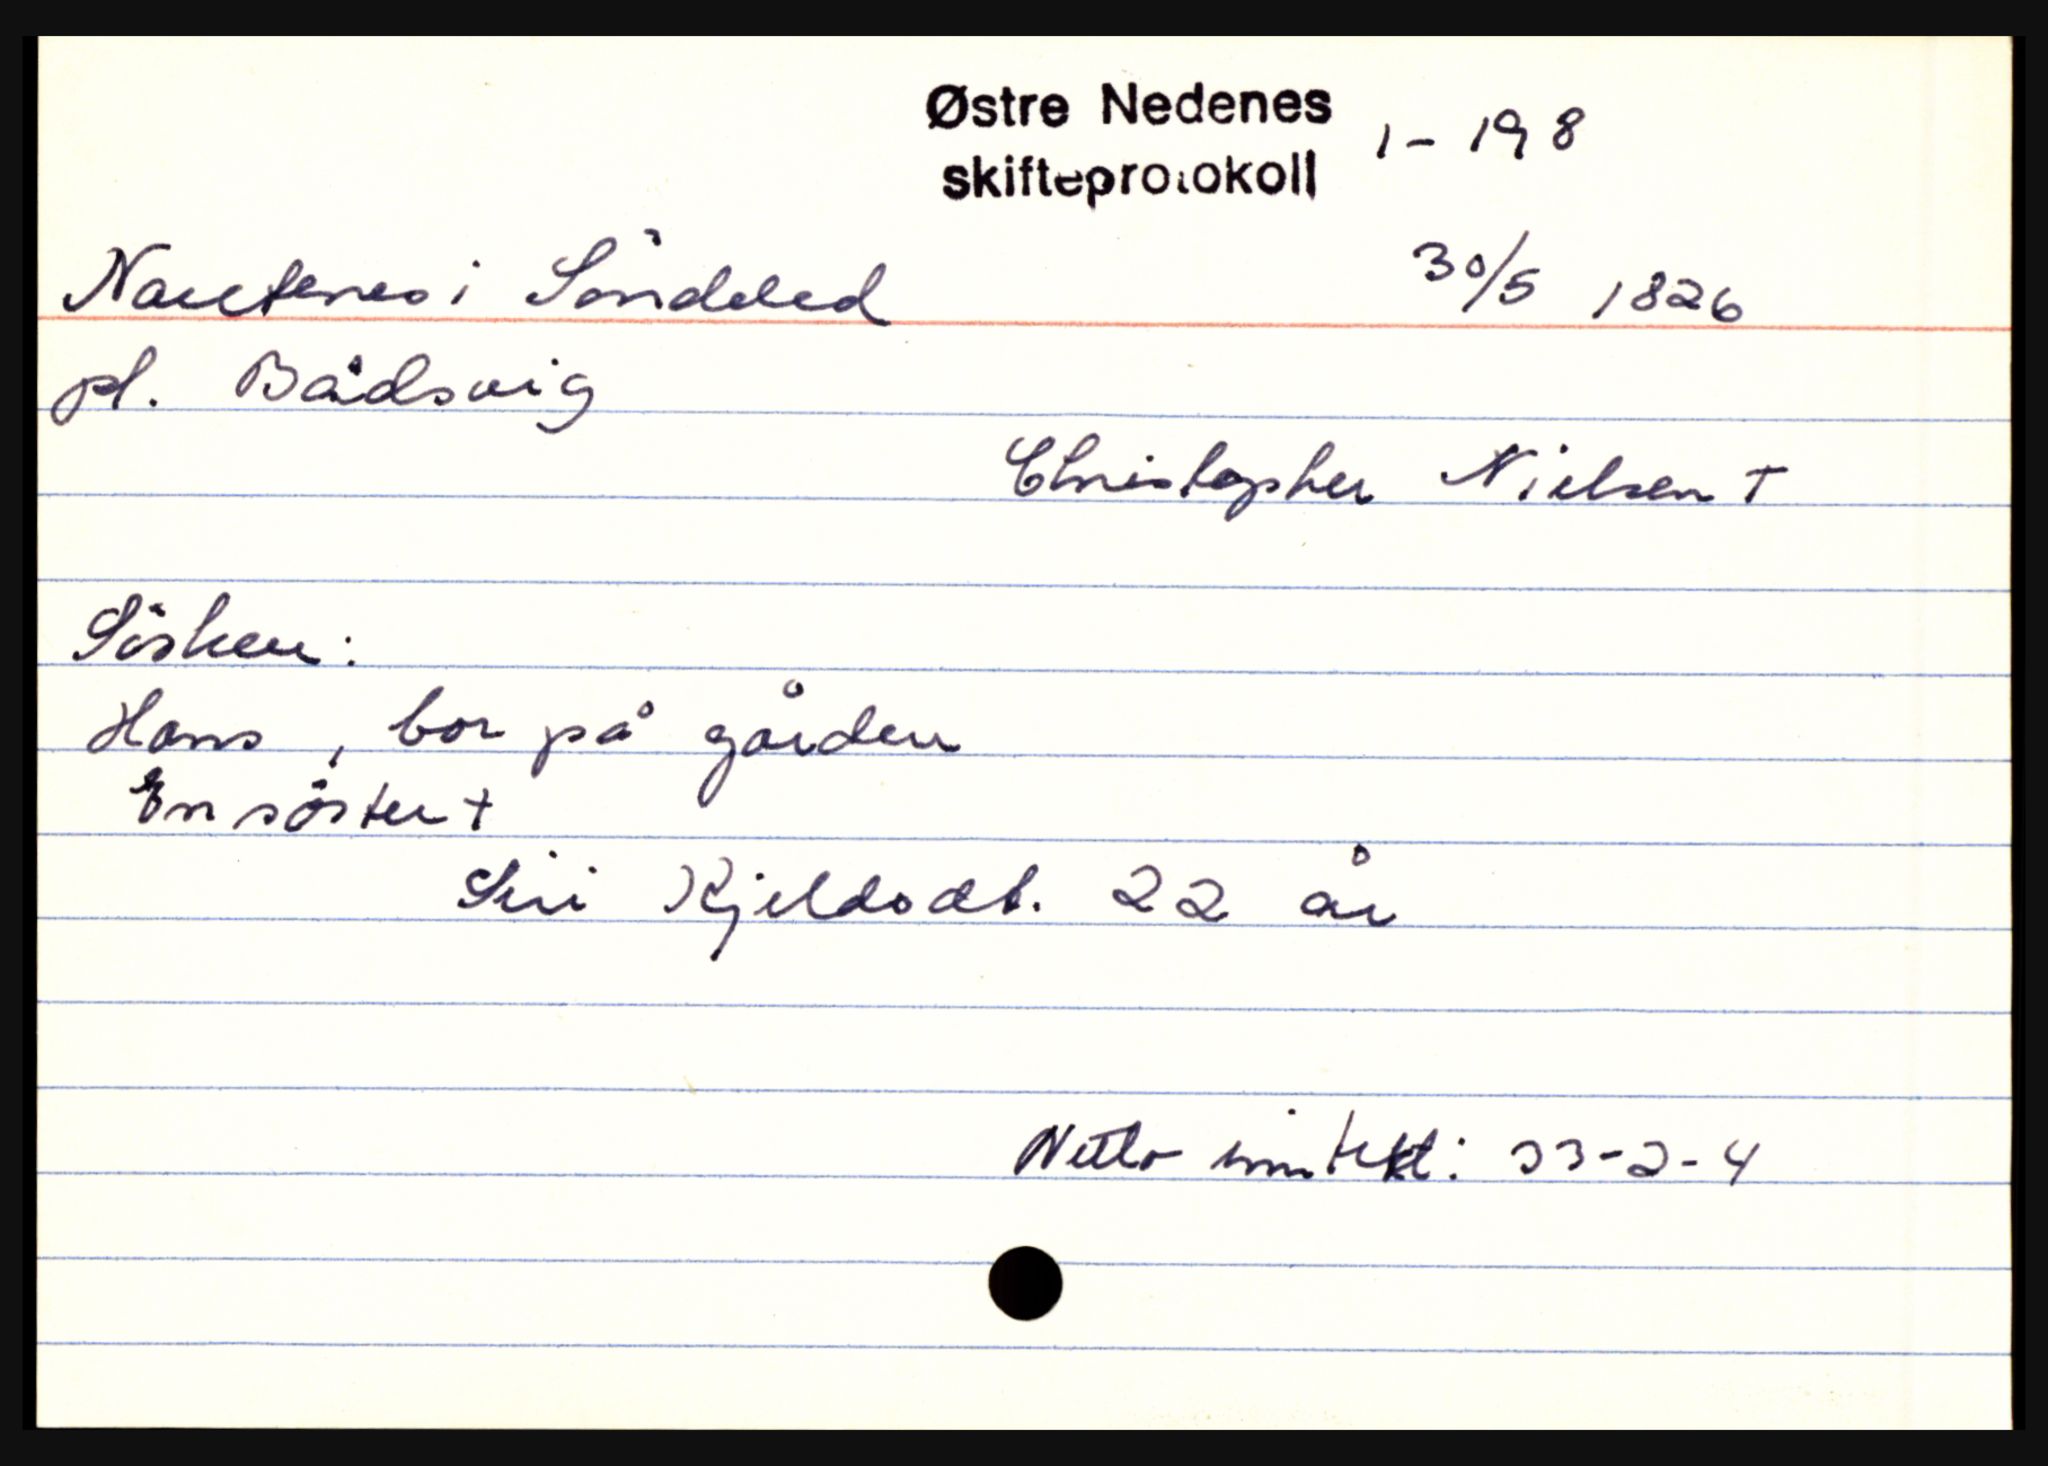 Østre Nedenes
skifteprotokoll 1-198
Nautenes i Söndeled 30/5 1826
pl. Bådsvig
Christopher Nielsen +
Sösken:
Hans, bor på gården
En söster +
Siri Kjeldsdt. 22 år
Netto inntekt: 33-2-4